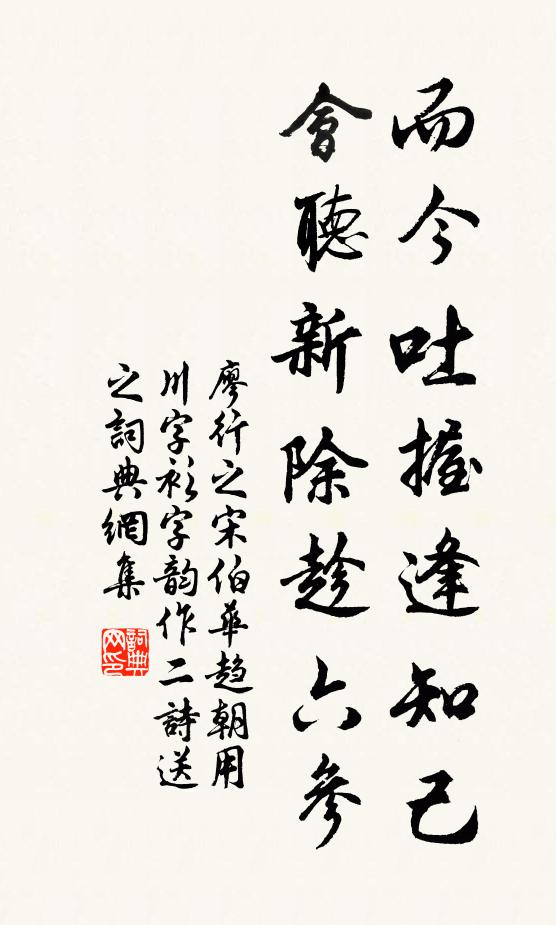 而今吐握逢知己
會聽新除趁六參
廖行之宋伯華趨朝用
川字衫字韵作二詩送
之詞典網集
詞典网印